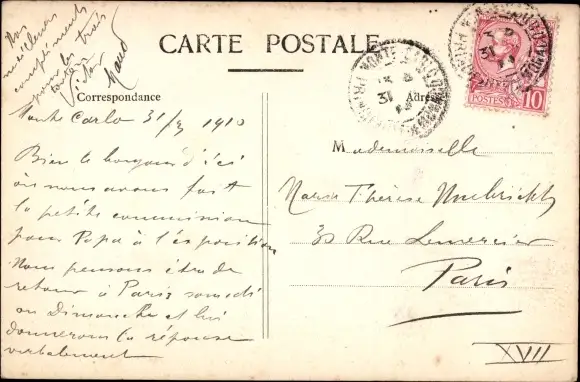 Nos
meilleurs
compliments
pour les trois
toutes
Maud
CARTE POSTALE
Correspondance
Adresse
POSTES 10
Monte Carlo 31/3 1910
Bien le bonjour d'ici
où nous avons fait
la petite commission
pour Papa à l'exposition
Nous pensons être de
retour à Paris samedi
ou Dimanche et lui
donnerons la réponse
verbalement
Mademoiselle
Marie Thérèse
39 Rue Lemercier
Paris
XVII